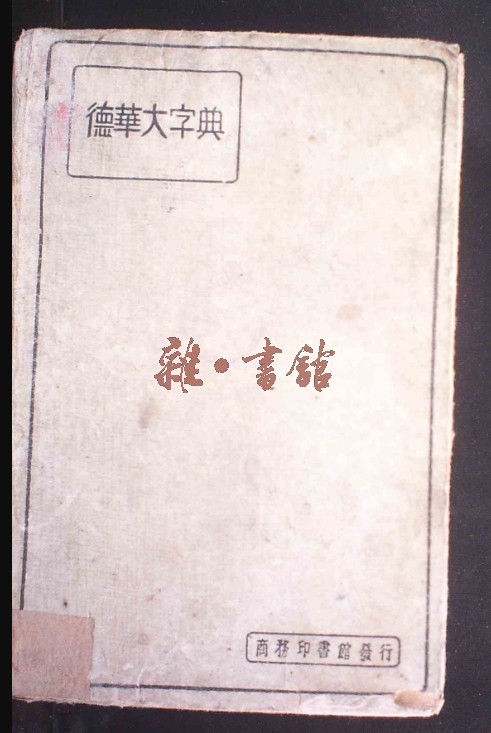 德華大字典
雜·書館
商務印書館發行